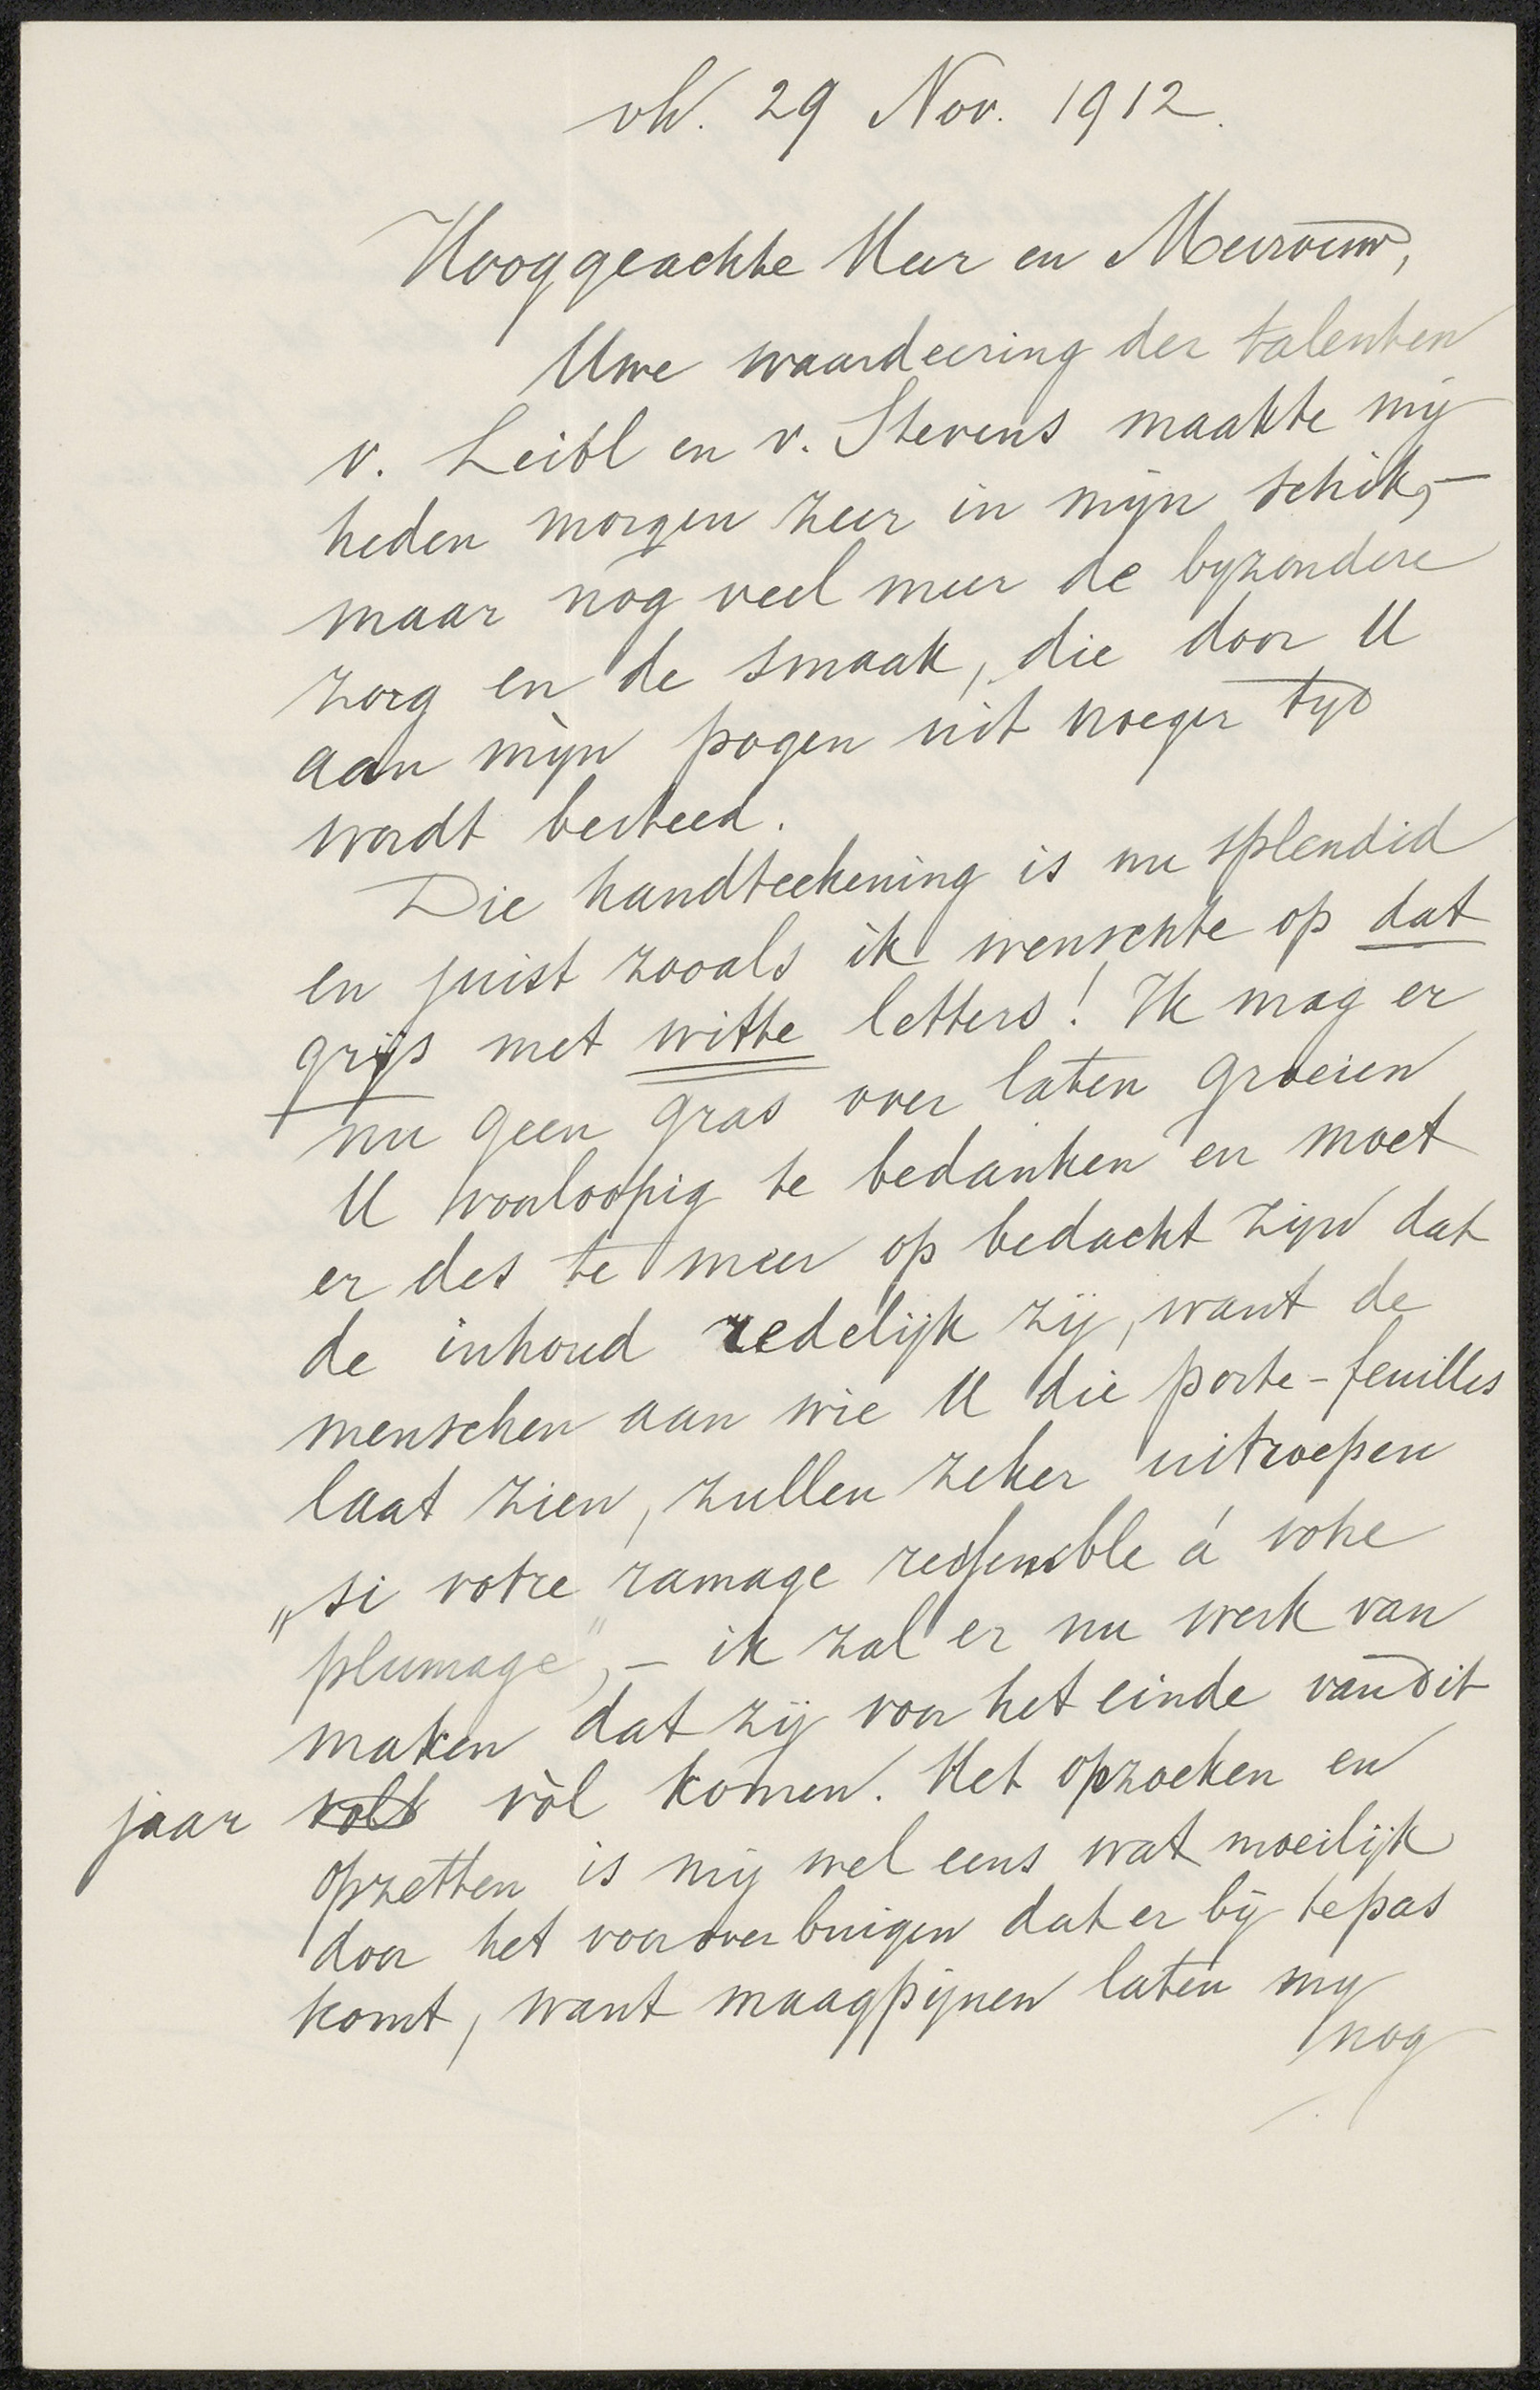 vh. 29 Nov. 1912.
Hooggeachte Heer en Mevrouw,
Uwe waardeering der talenten
v. Leibl en v. Stevens maakte mij
heden morgen zeer in mijn schik,—
maar nog veel meer de byzondere
zorg en de smaak, die door U
aan mijn pogen uit vroeger tyd
wordt besteed.
Die handteekening is nu splendid
en juist zooals ik wenschte op dat
grijs met witte letters! Ik mag er
nu geen gras over laten groeien
U voorloopig te bedanken en moet
er des te meer op bedacht zijn dat
de inhoud redelijk zij, want de
menschen aan wie U die porte-feuilles
laat zien, zullen zeker uitroepen
„si votre ramage ressemble á votre
plumage",— ik zal er nu werk van
maken dat zij voor het einde van dit
jaar vòl komen. Het opzoeken en
opzetten is mij wel eens wat moeilijk
door het voorover buigen dat er bij te pas
komt, want maagpijnen laten my
nog